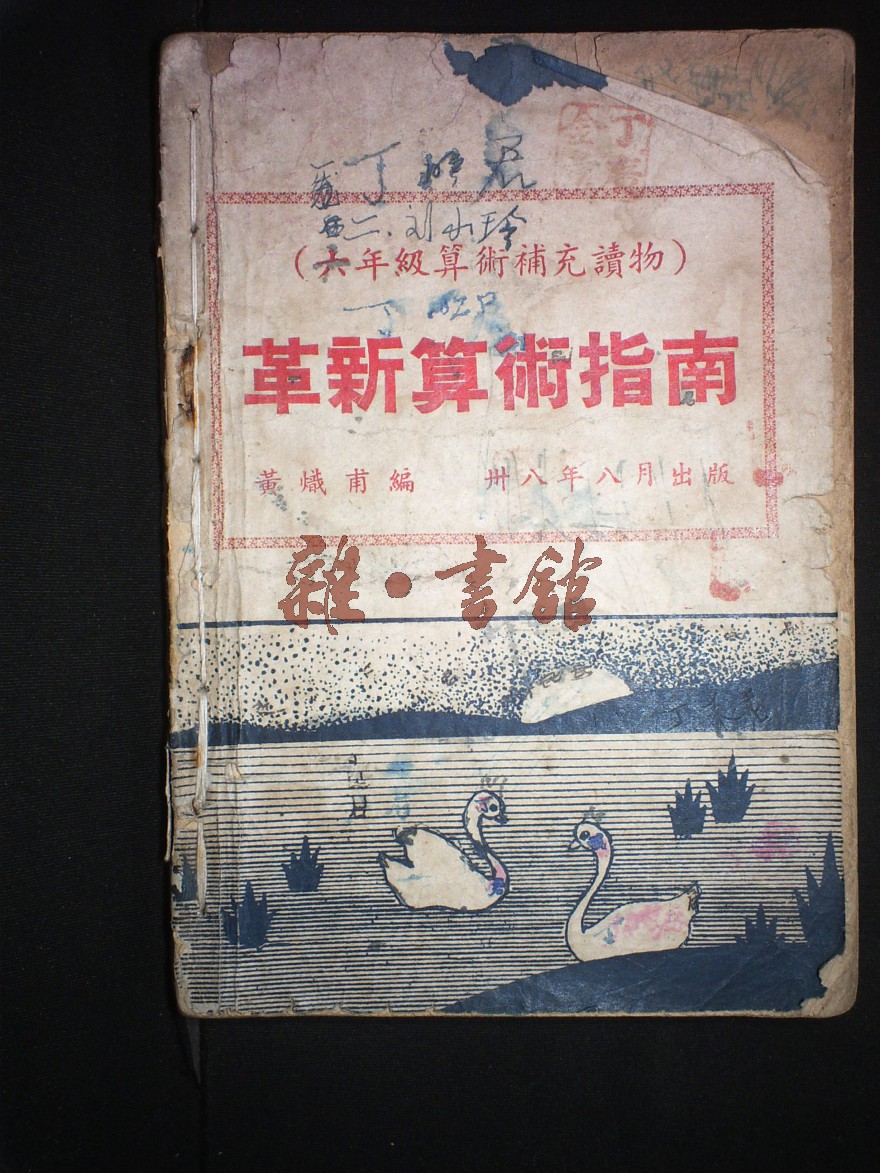 丁
二.刘
（六年級算術補充讀物）
丁
革新算術指南
黃熾甫編　卅八年八月出版
雜·書館
丁